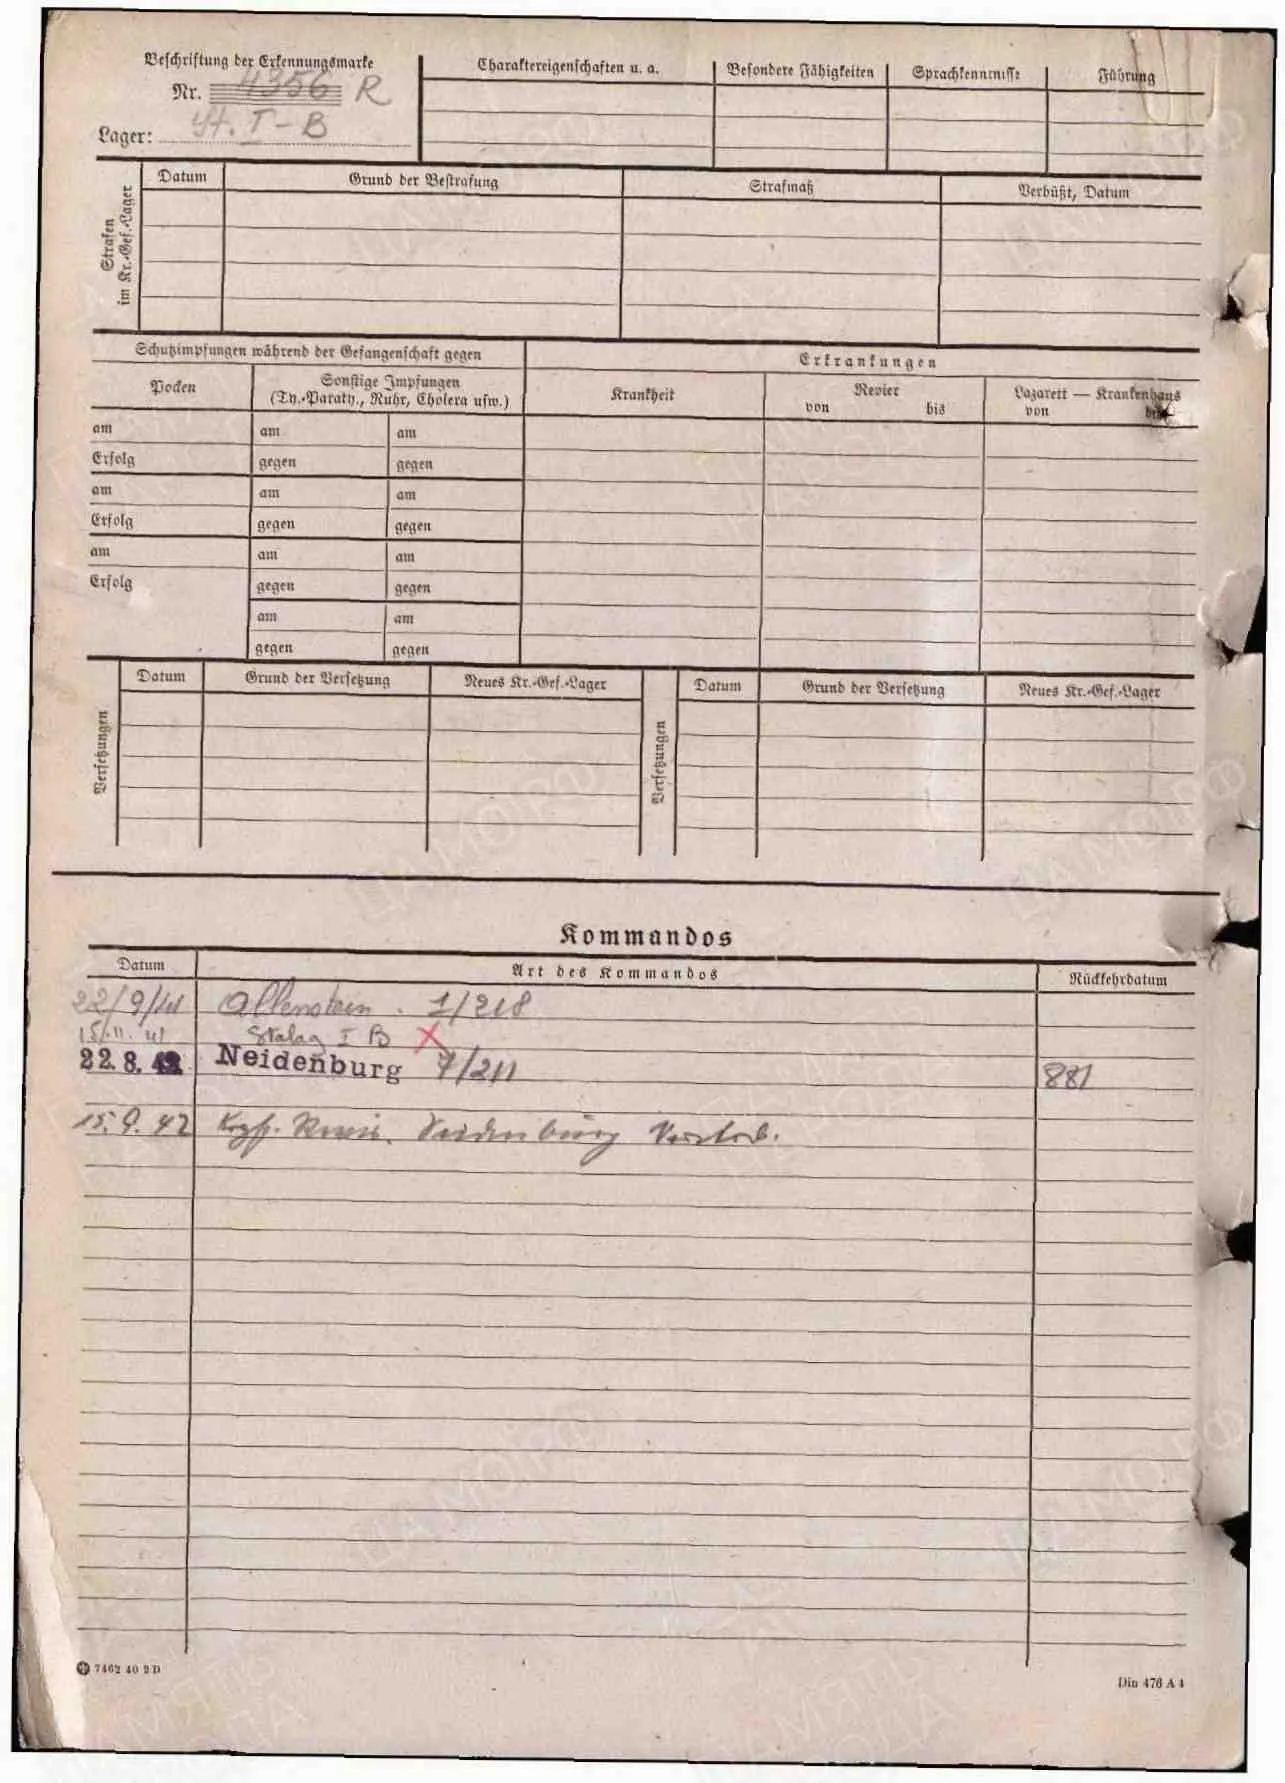 Beschriftung der Erkennungsmarke
Nr. 4356 R
Lager: St. I-B
Charaktereigenschaften u. a.
Besondere Fähigkeiten
Sprachkenntnisse
Führung
Strafen im Kr.-Gef.-Lager
Datum
Grund der Bestrafung
Strafmaß
Verbüßt, Datum
Schutzimpfungen während der Gefangenschaft gegen
Erkrankungen
Pocken
Sonstige Impfungen
(Ty.-Paraty., Ruhr, Cholera usw.)
Krankheit
Revier
von bis
Lazarett — Krankenhaus
von bis
am am am
Erfolg gegen gegen
am am am
Erfolg gegen gegen
am am am
Erfolg gegen gegen
am am
gegen gegen
Versetzungen
Datum
Grund der Versetzung
Neues Kr.-Gef.-Lager
Versetzungen
Datum
Grund der Versetzung
Neues Kr.-Gef.-Lager
Kommandos
Datum
Art des Kommandos
Rückkehrdatum
22/9/41 Allenstein. 1/218
15.11.41 Stalag I B X
22.8.42 Neidenburg 7/211 881
15.9.42 Neidenburg Verstorb.
7462 40 2 D
Din 476 A 4
ЦАМО РФ